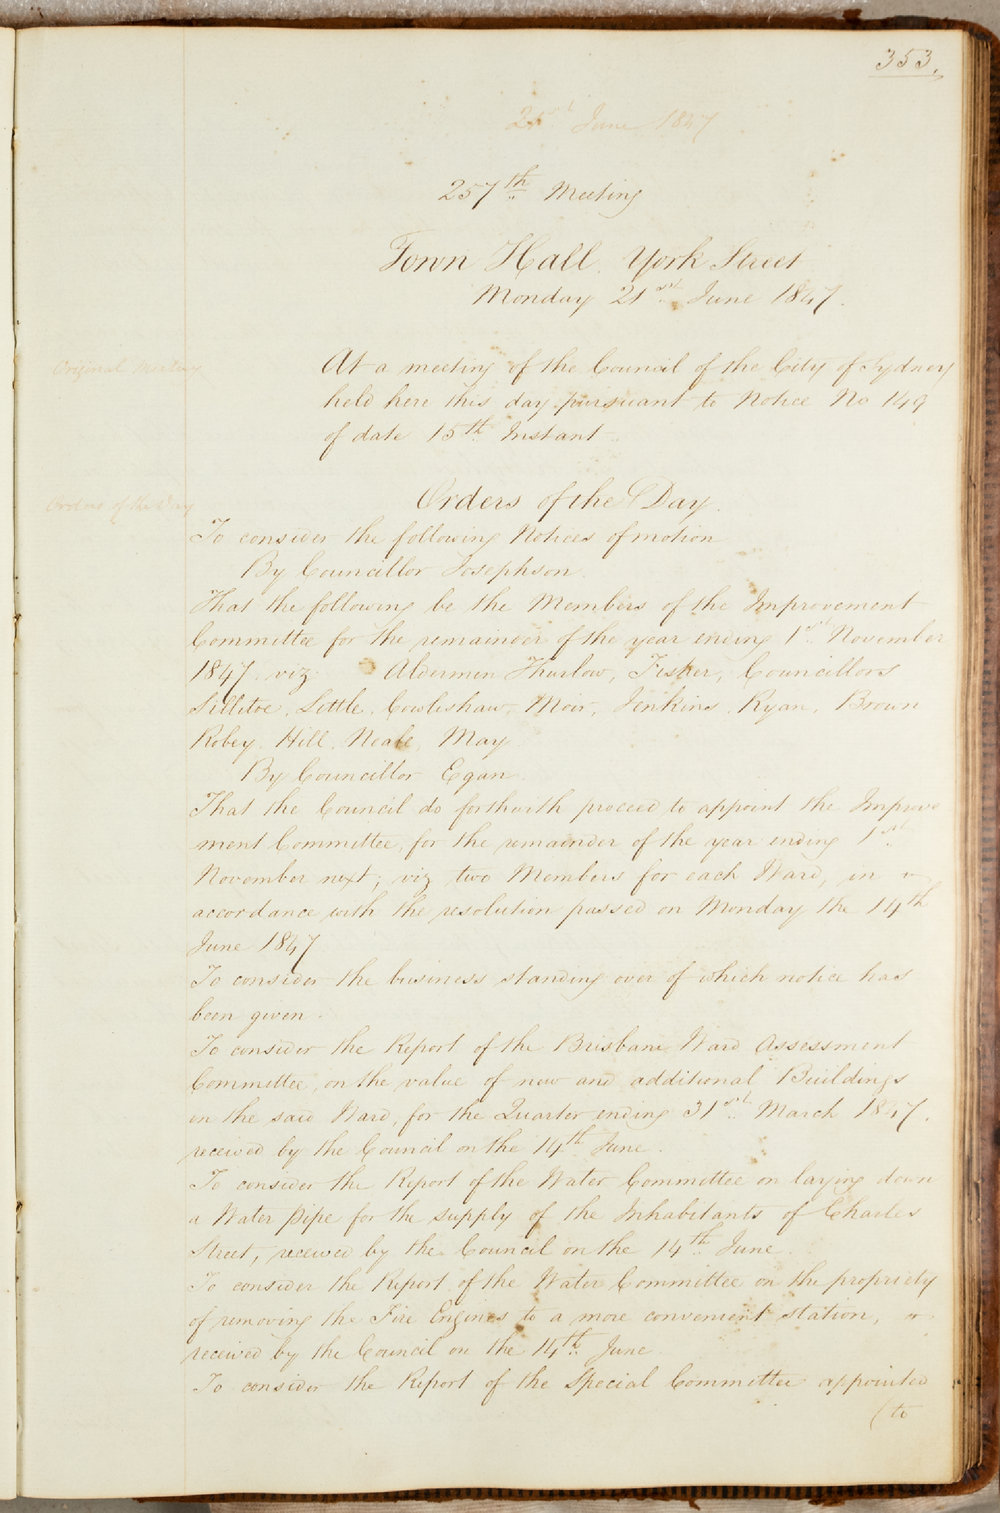 353.
21st June 1847
257th Meeting
Town Hall York Street
Monday 21st June 1847.
Original Meeting
At a meeting of the Council of the City of Sydney
held here this day pursuant to Notice No 149
of date 15th Instant
Orders of the Day
Orders of the Day.
To consider the following Notices of motion
By Councillor Josephson.
That the following be the Members of the Improvement
Committee for the remainder of the year ending 1st November
1847. viz. Aldermen Thurlow, Fisher, Councillors
Sillitoe, Little, Cowlishaw, Moir, Jenkins, Ryan, Brown
Robey, Hill, Neale, May
By Councillor Egan
That the Council do forthwith proceed to appoint the Improve
ment Committee, for the remainder of the year ending 1st
November next; viz two Members for each Ward, in
accordance with the resolution passed on Monday the 14th
June 1847
To consider the business standing over of which notice has
been given.
To consider the Report of the Brisbane Ward Assessment
Committee, on the value of new and additional Buildings
in the said Ward, for the Quarter ending 31st March 1847.
received by the Council on the 14th June.
To consider the Report of the Water Committee on laying down
a Water Pipe for the supply of the Inhabitants of Charles
Street, received by the Council on the 14th June.
To consider the Report of the Water Committee on the propriety
of removing the Fire Engines to a more convenient station,
received by the Council on the 14th June.
To consider the Report of the Special Committee appointed
(to